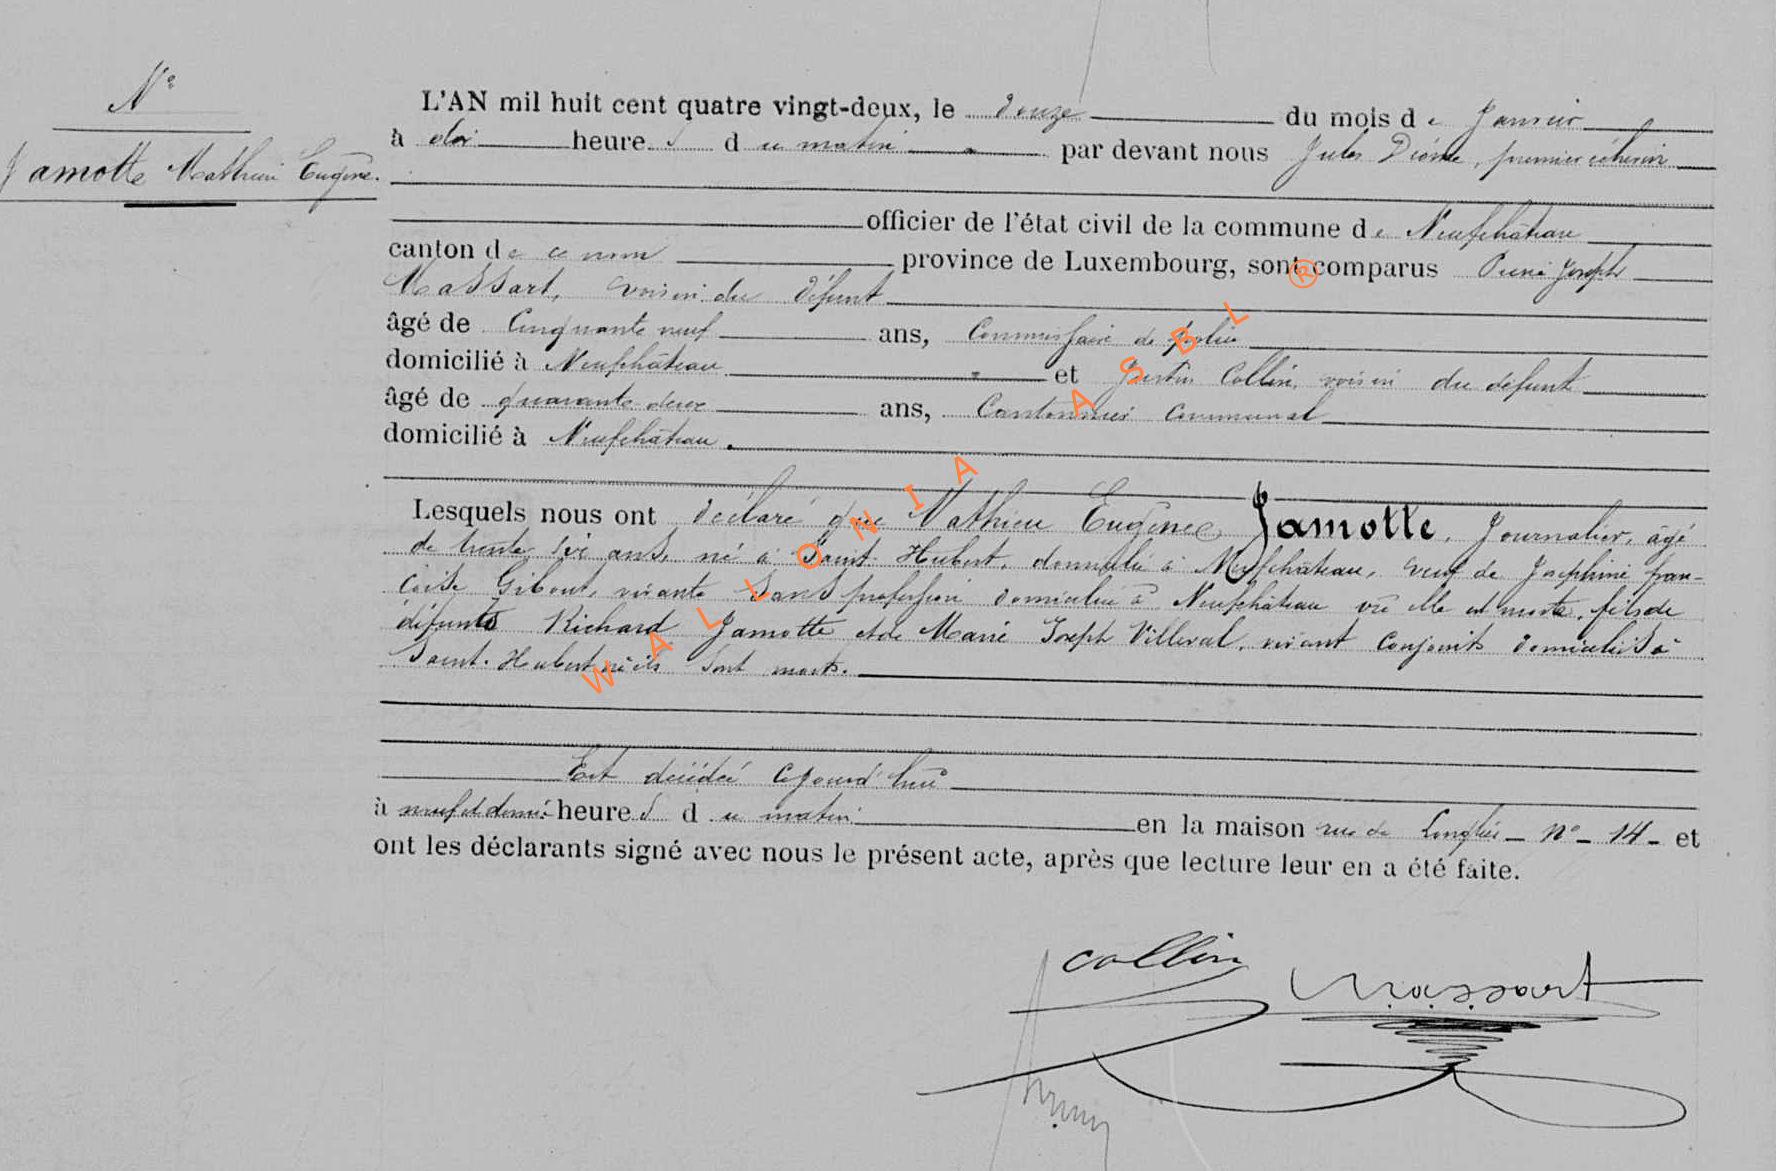 N°
Jamotte Mathieu Eugène.
L'AN mil huit cent quatre vingt-deux, le douze du mois de Janvier
à dix heures du matin par devant nous Jules Diome, premier échevin
officier de l'état civil de la commune de Neufchâteau
canton de ce nom province de Luxembourg, sont comparus Joseph
Massart, voisin du défunt
âgé de Cinquante neuf ans, Commissaire de police
domicilié à Neufchâteau et Justin Collin, voisin du défunt
âgé de quarante deux ans, Cantonnier Communal
domicilié à Neufchâteau.
Lesquels nous ont déclaré que Mathieu Eugène Jamotte, Journalier, âgé
de trente six ans, né à Saint Hubert, domicilié à Neufchâteau, veuf de Joséphine Fran-
çoise Gibout, vivante sans profession domiciliée à Neufchâteau où elle est morte, fils de
défunts Richard Jamotte et de Marie Joseph Villeval, vivant conjoints domiciliés à
Saint-Hubert où ils sont morts.
Est décédé cejourd'hui
à neuf et demi heures du matin en la maison rue de Longlier - N° - 14 - et
ont les déclarants signé avec nous le présent acte, après que lecture leur en a été faite.
Collin
Massart
WALLONIA ASBL ®